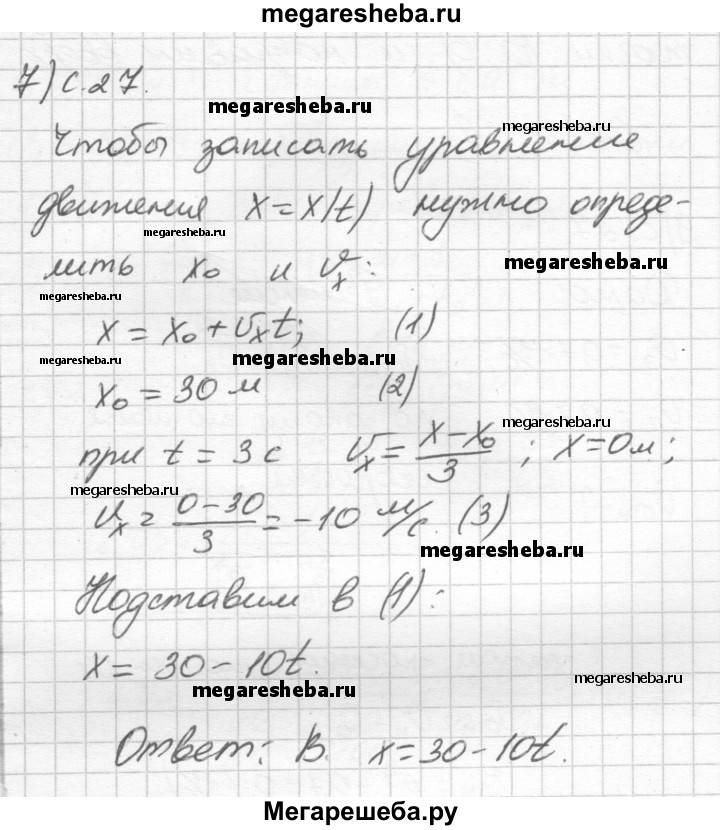 megaresheba.ru
7) с.27.
megaresheba.ru
megaresheba.ru
Чтобы записать уравнение
движения x=x(t) нужно опреде-
megaresheba.ru
лить x₀ и υₓ:
megaresheba.ru
megaresheba.ru
x = x₀ + υₓt; (1)
megaresheba.ru
megaresheba.ru
x₀ = 30 м (2)
megaresheba.ru
при t = 3 с υₓ = (x - x₀)/3 ; x = 0 м;
megaresheba.ru
υₓ = (0 - 30)/3 = -10 м/с. (3)
megaresheba.ru
Подставим в (1):
x = 30 - 10t.
megaresheba.ru
megaresheba.ru
Ответ: В. x = 30 - 10t.
Мегарешеба.ру